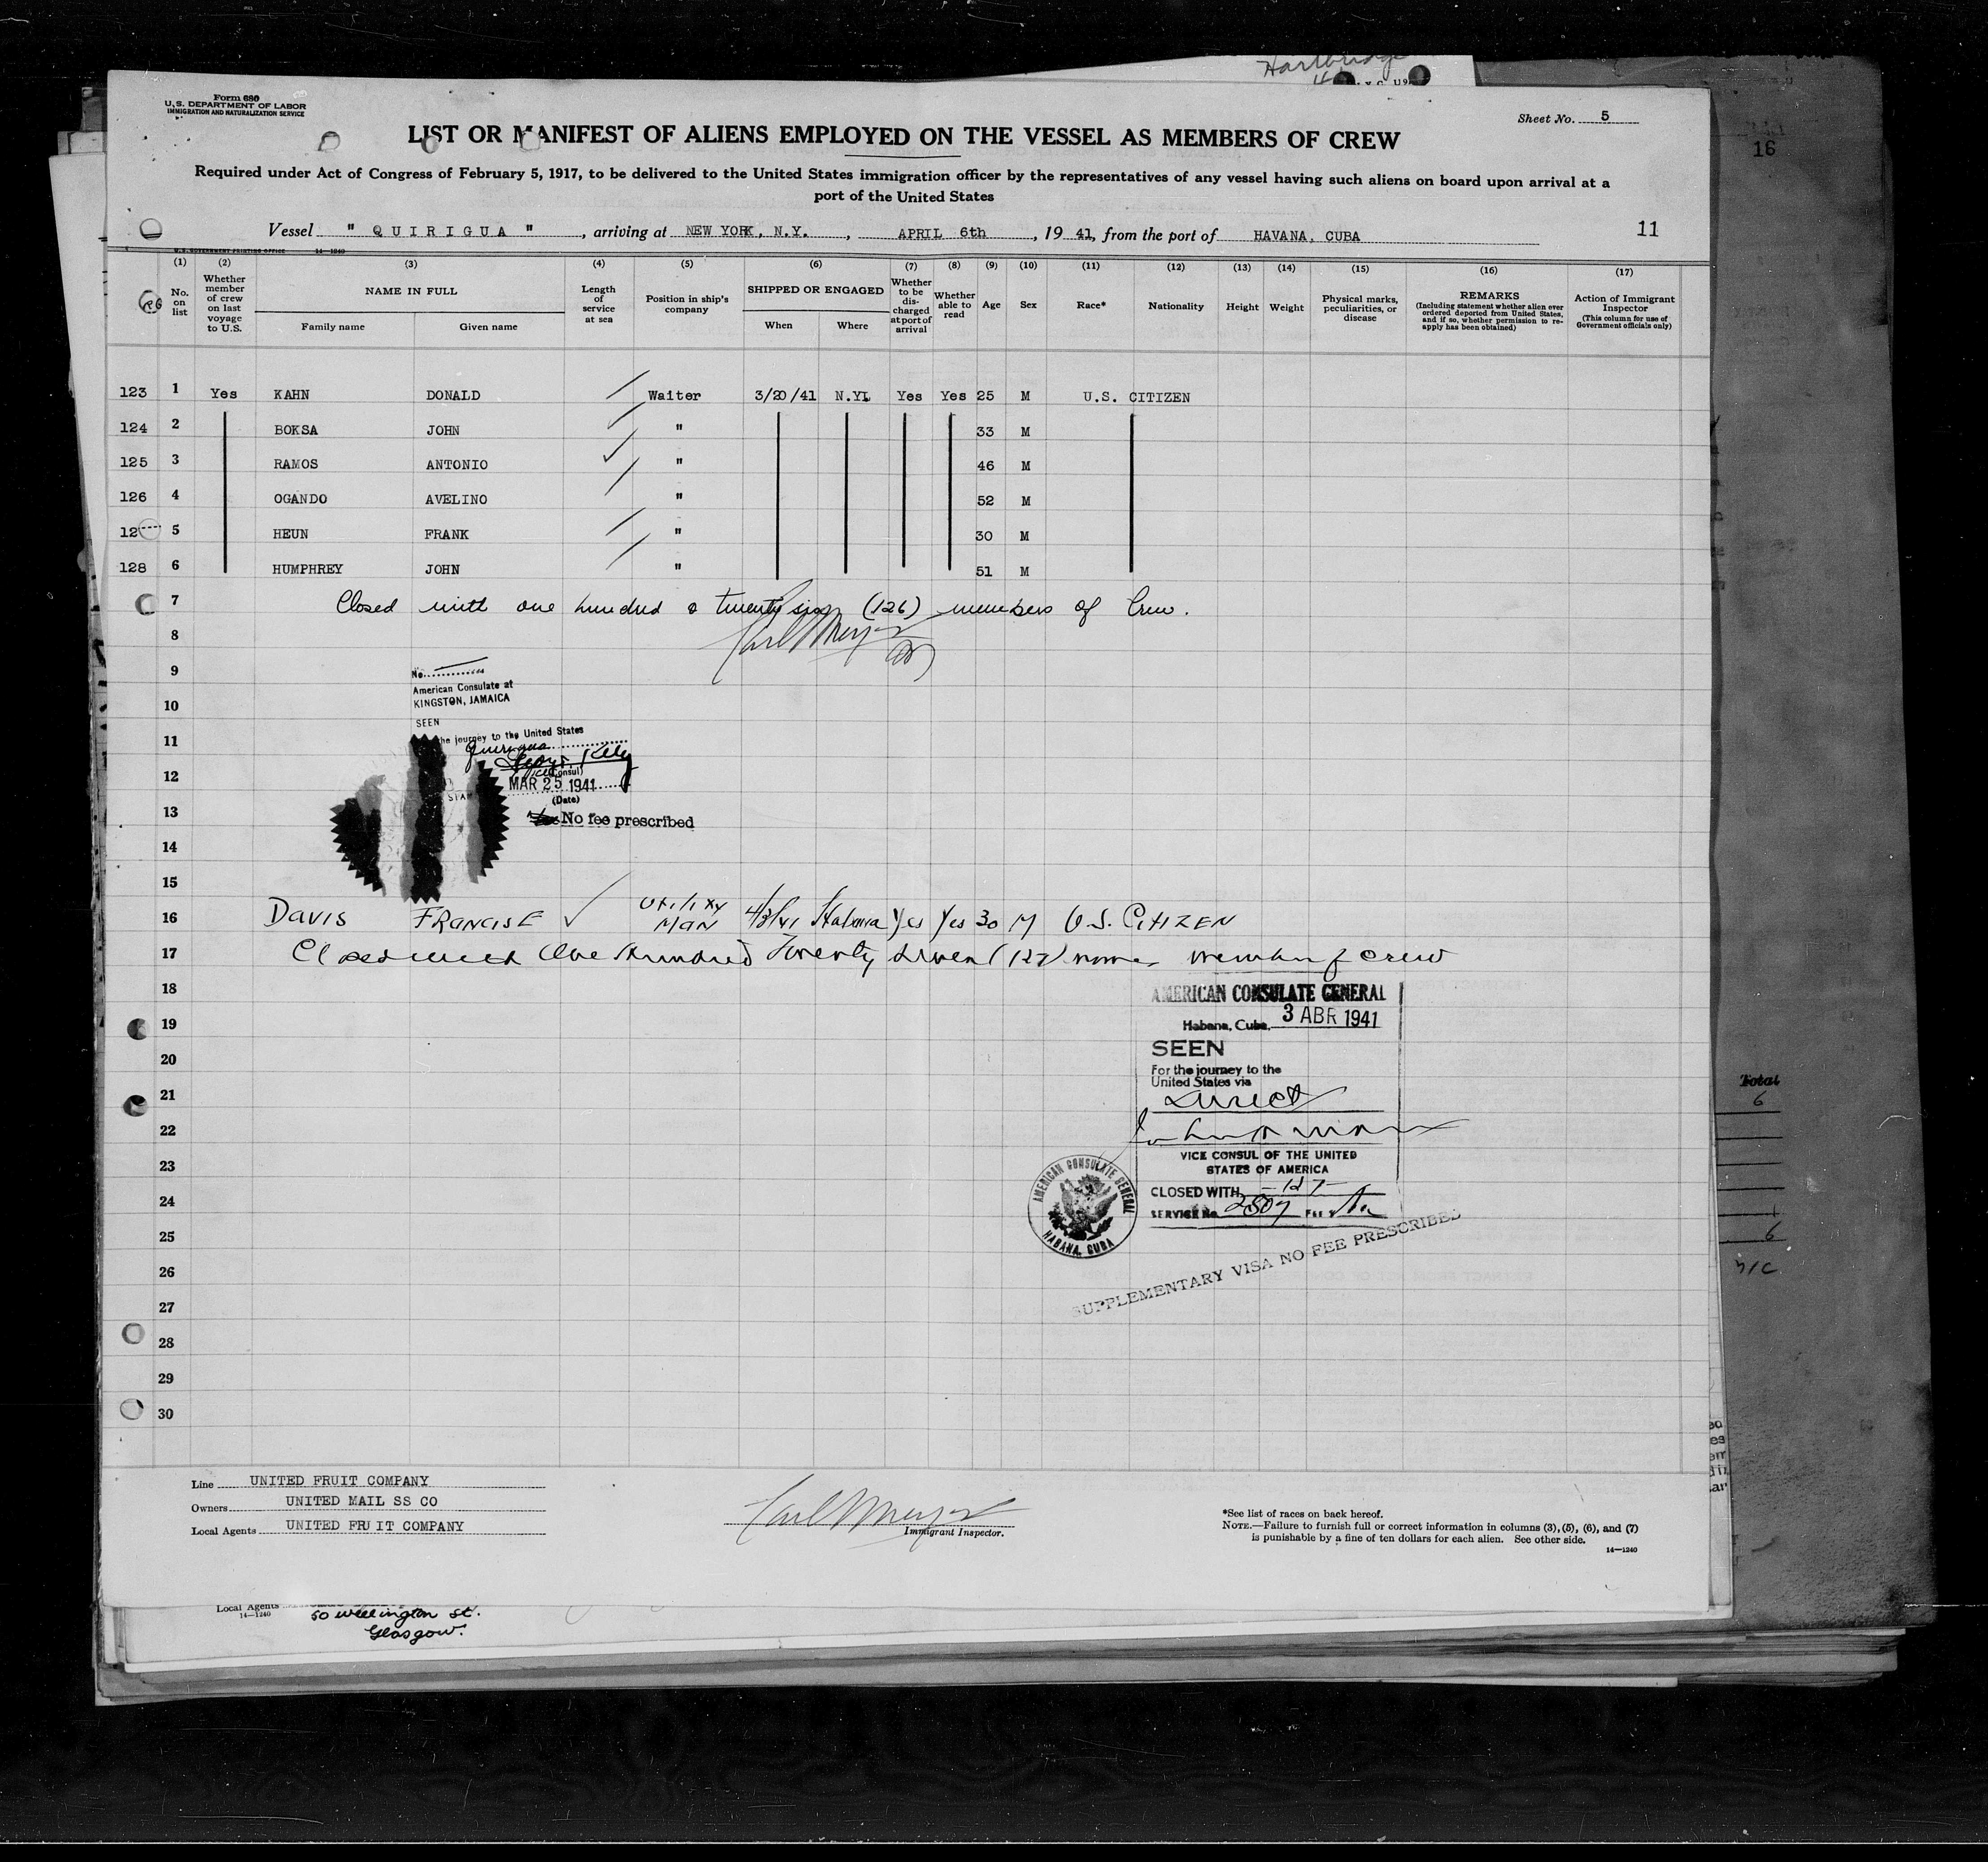 Hartbridge
Form 680
U.S. DEPARTMENT OF LABOR
IMMIGRATION AND NATURALIZATION SERVICE
Sheet No. 5
LIST OR MANIFEST OF ALIENS EMPLOYED ON THE VESSEL AS MEMBERS OF CREW
16
Required under Act of Congress of February 5, 1917, to be delivered to the United States immigration officer by the representatives of any vessel having such aliens on board upon arrival at a
port of the United States
Vessel " QUIRIGUA ", arriving at NEW YORK, N.Y., APRIL 6th, 1941, from the port of HAVANA, CUBA
11
U.S. GOVERNMENT PRINTING OFFICE 14—1240
(1) (2) (3) (4) (5) (6) (7) (8) (9) (10) (11) (12) (13) (14) (15) (16) (17)
No. on list
Whether member of crew on last voyage to U.S.
NAME IN FULL
Family name Given name
Length of service at sea
Position in ship's company
SHIPPED OR ENGAGED
When Where
Whether to be discharged at port of arrival
Whether able to read
Age Sex Race* Nationality Height Weight
Physical marks, peculiarities, or disease
REMARKS
(Including statement whether alien ever ordered deported from United States, and if so, whether permission to reapply has been obtained)
Action of Immigrant Inspector
(This column for use of Government officials only)
123 1 Yes KAHN DONALD Waiter 3/20/41 N.Y. Yes Yes 25 M U.S. CITIZEN
124 2 BOKSA JOHN " 33 M
125 3 RAMOS ANTONIO " 46 M
126 4 OGANDO AVELINO " 52 M
12 5 HEUN FRANK " 30 M
128 6 HUMPHREY JOHN " 51 M
7 Closed with one hundred & twenty six (126) members of Crew.
8 Carl Meyer
9
No.
American Consulate at
KINGSTON, JAMAICA
10
SEEN
11 the journey to the United States
Quirigua
12
Consul)
MAR 25 1941
(Date)
13 No fee prescribed
14
15
16 DAVIS FRANCIS E Utility MAN 4/3/41 Habana Yes Yes 30 M U.S. CITIZEN
17 Closed with One Hundred Twenty Seven (127) members of crew
18 AMERICAN CONSULATE GENERAL
19 Habana, Cuba, 3 ABR 1941
20 SEEN
For the journey to the
United States via
21 Direct
22
23 VICE CONSUL OF THE UNITED
STATES OF AMERICA
CLOSED WITH -127-
24 SERVICE No. 2807 FEE
AMERICAN CONSULATE GENERAL
HABANA, CUBA
25
SUPPLEMENTARY VISA NO FEE PRESCRIBED
26
27
28
29
30
Total
6
6
n/c
Line UNITED FRUIT COMPANY
Owners UNITED MAIL SS CO
Local Agents UNITED FRUIT COMPANY
Carl Meyer
Immigrant Inspector.
*See list of races on back hereof.
NOTE.—Failure to furnish full or correct information in columns (3), (5), (6), and (7)
is punishable by a fine of ten dollars for each alien. See other side.
14—1240
Local Agents
14—1240
50 Wellington St.
Glasgow.